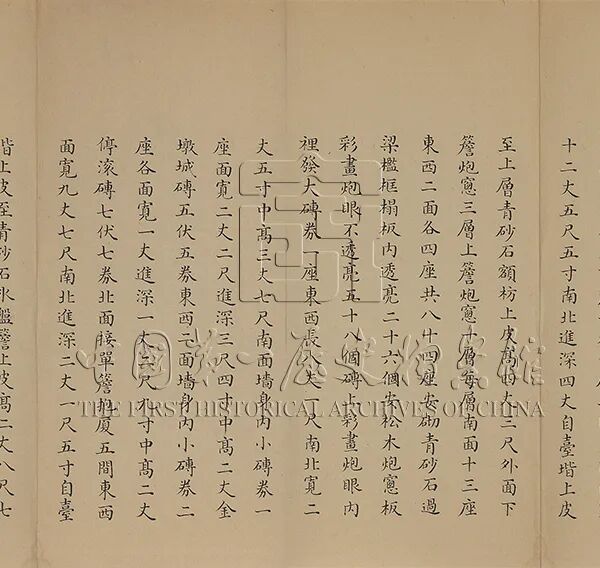 十二丈五尺五寸南北進深四丈自臺堦上皮
至上層青砂石額枋上皮高四丈二尺外面下
簷炮窻三層上簷炮窻一層每層南面十三座
東西二面各四座共八十四座安砌青砂石過
梁檻框榻板内透亮二十六個安松木炮窻板
彩畫炮眼不透亮五十八個磚上彩畫炮眼内
裡發大磚券一座東西長八丈一尺南北寬二
丈五寸中高三丈七尺南面墻身内小磚券一
座面寬二丈二尺進深三尺四寸中高二丈金
墩城磚五伏五券東西二面墻身内小磚券二
座各面寬一丈進深一丈六尺九寸中高二丈
停滚磚七伏七券北面接單簷抱厦五間東西
面寬九丈七尺南北進深二丈一尺五寸自臺
堦上皮至青砂石冰盤簷上皮高二丈八尺七
中國第一歷史檔案館
THE FIRST HISTORICAL ARCHIVES OF CHINA